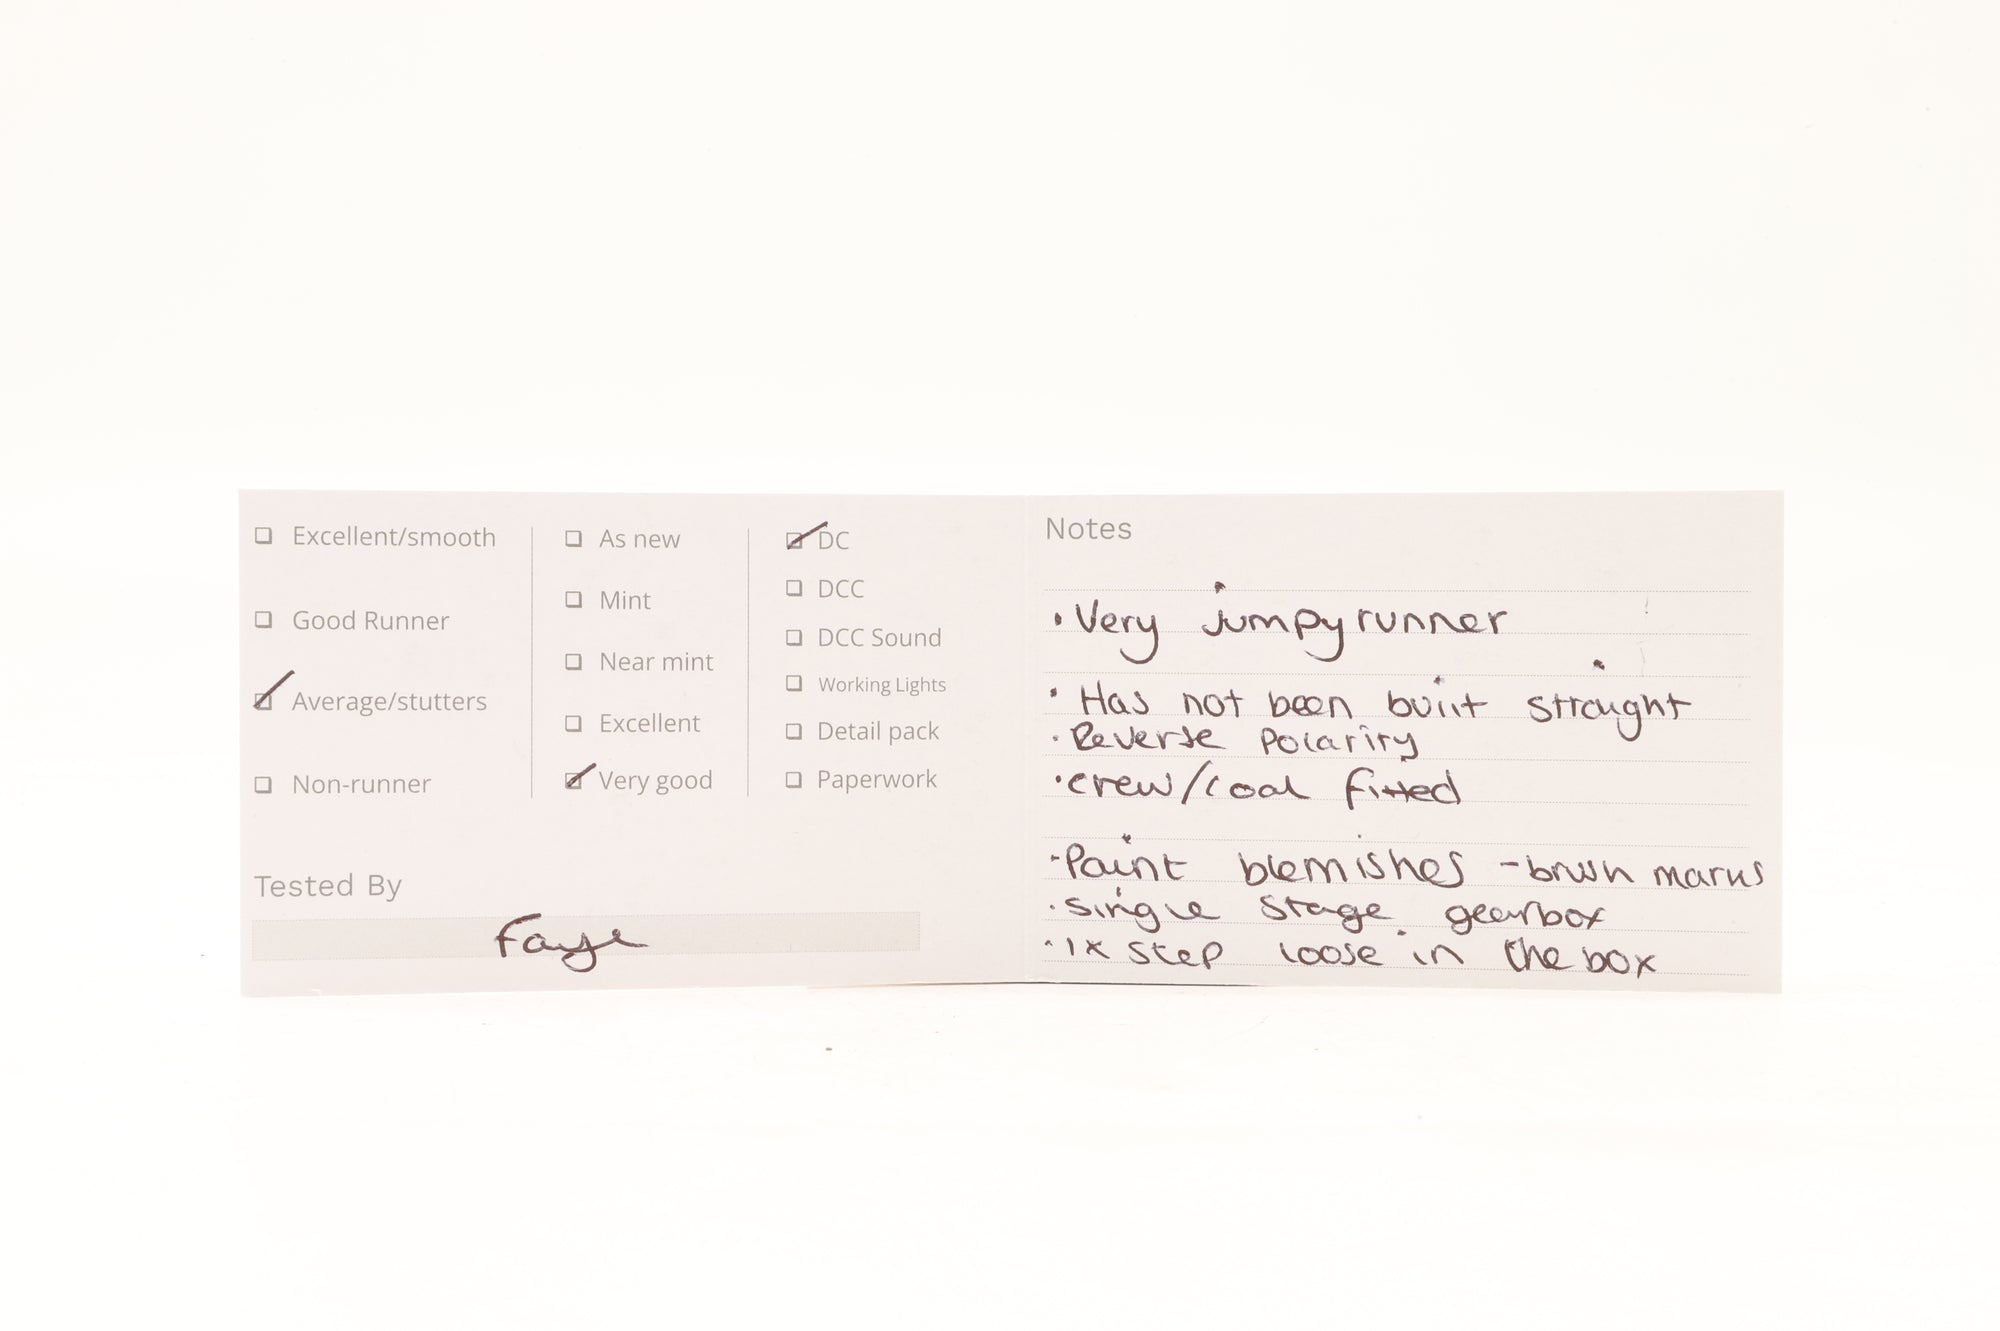 Excellent/smooth
Good Runner
Average/stutters
Non-runner
As new
Mint
Near mint
Excellent
Very good
DC
DCC
DCC Sound
Working Lights
Detail pack
Paperwork
Tested By
Faye
Notes
• Very jumpy runner
• Has not been built straight
• Reverse Polarity
• crew/coal fitted
• Paint blemishes - brush marks
• single stage gearbox
• 1x step loose in the box